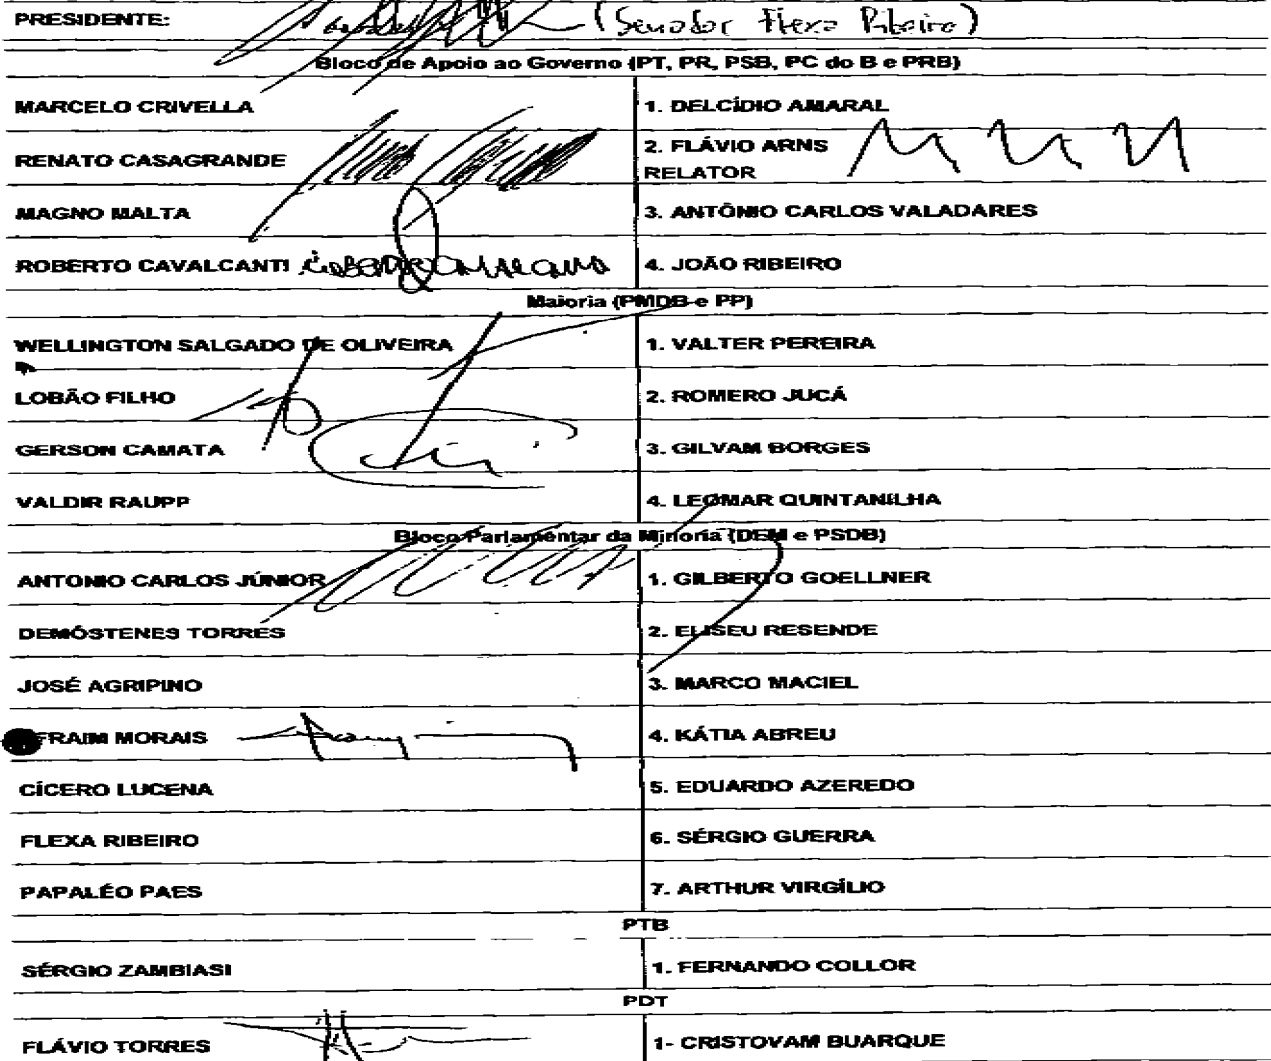 PRESIDENTE: (Senador Flexa Ribeiro)
Bloco de Apoio ao Governo (PT, PR, PSB, PC do B e PRB)
MARCELO CRIVELLA
1. DELCÍDIO AMARAL
RENATO CASAGRANDE
2. FLÁVIO ARNS
RELATOR
MAGNO MALTA
3. ANTÔNIO CARLOS VALADARES
ROBERTO CAVALCANTI
4. JOÃO RIBEIRO
Maioria (PMDB e PP)
WELLINGTON SALGADO DE OLIVEIRA
1. VALTER PEREIRA
LOBÃO FILHO
2. ROMERO JUCÁ
GERSON CAMATA
3. GILVAM BORGES
VALDIR RAUPP
4. LEOMAR QUINTANILHA
Bloco Parlamentar da Minoria (DEM e PSDB)
ANTONIO CARLOS JÚNIOR
1. GILBERTO GOELLNER
DEMÓSTENES TORRES
2. ELISEU RESENDE
JOSÉ AGRIPINO
3. MARCO MACIEL
FRAIM MORAIS
4. KÁTIA ABREU
CÍCERO LUCENA
5. EDUARDO AZEREDO
FLEXA RIBEIRO
6. SÉRGIO GUERRA
PAPALÉO PAES
7. ARTHUR VIRGÍLIO
PTB
SÉRGIO ZAMBIASI
1. FERNANDO COLLOR
PDT
FLÁVIO TORRES
1- CRISTOVAM BUARQUE